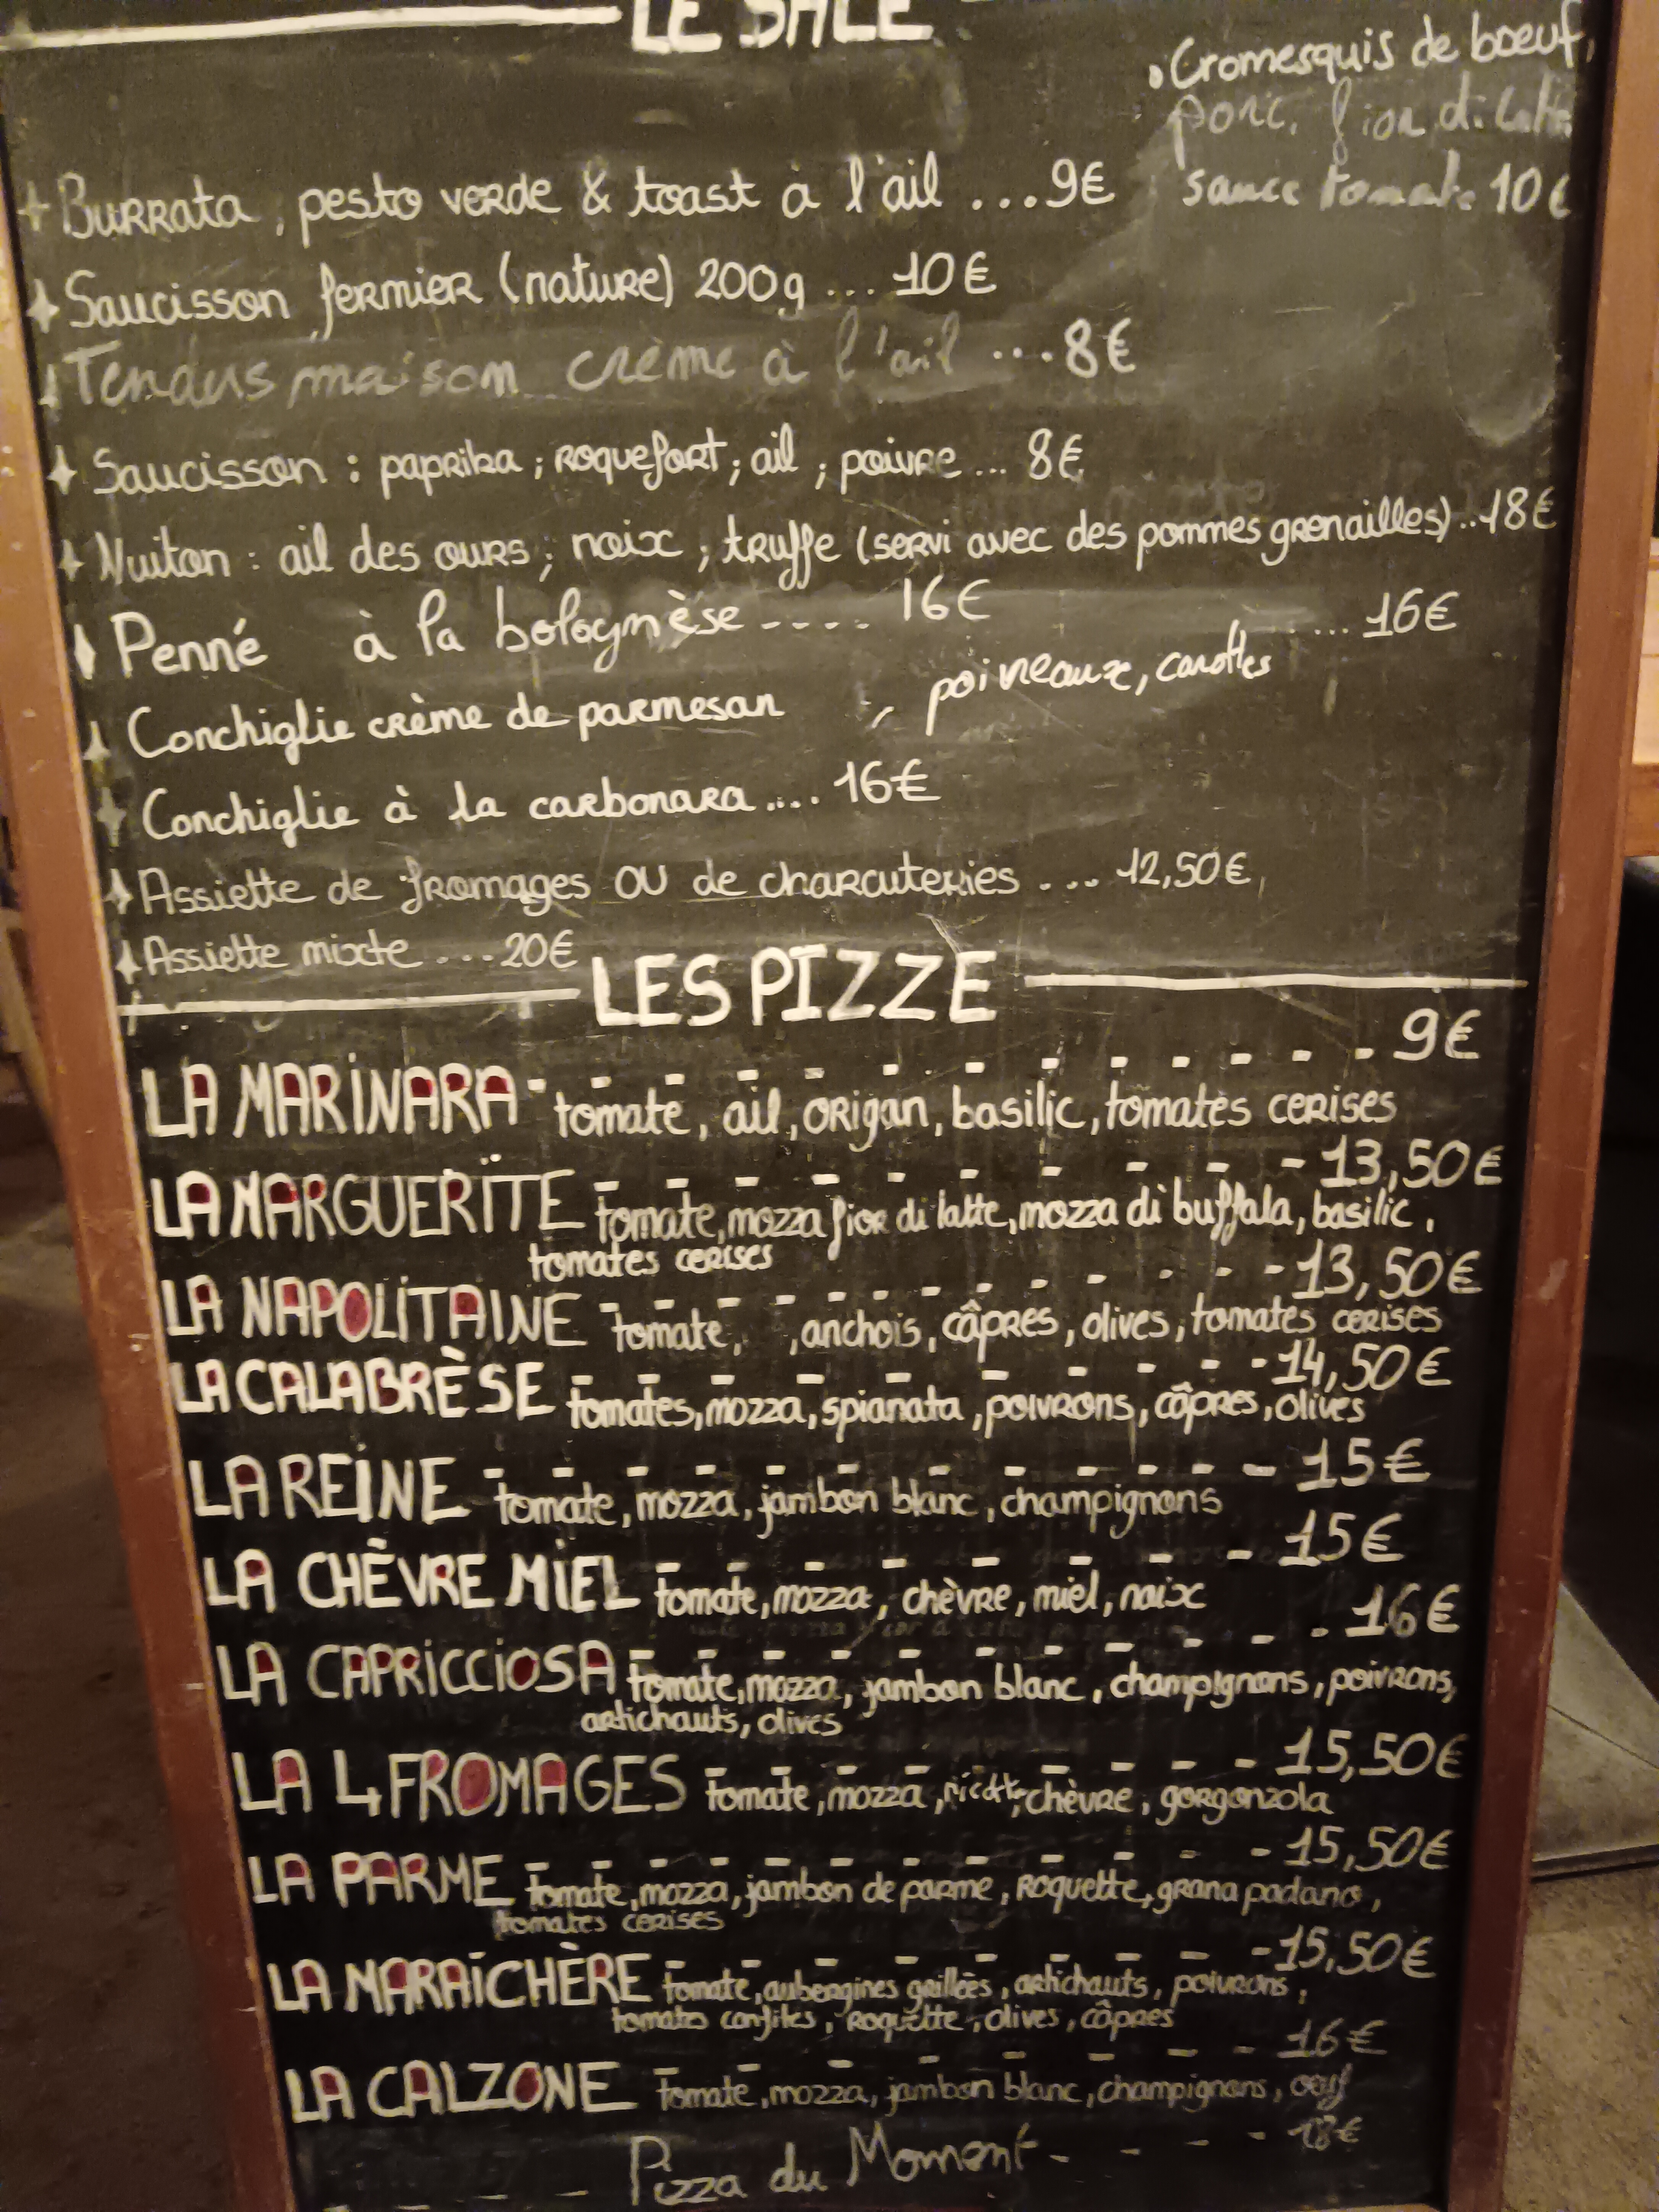 LE SALÉ
• Cromesquis de boeuf,
porc, fior di latte
sauce tomate 10€
Burrata, pesto verde & toast à l'ail ...9€
Saucisson fermier (nature) 200g ... 10€
Tendus maison crème à l'ail ...8€
Saucisson : paprika ; roquefort ; ail ; poivre ... 8€
Nuiton : ail des ours ; noix ; truffe (servi avec des pommes grenailles) ..18€
Penné à la bolognèse ---- 16€
Conchiglie crème de parmesan , poireaux, carottes ... 16€
Conchiglie à la carbonara .... 16€
Assiette de fromages OU de charcuteries .... 12,50€
Assiette mixte ....20€
LES PIZZE
LA MARINARA - - - - - - - - - - - - 9€
tomate, ail, origan, basilic, tomates cerises
LA MARGUERITE - - - - - - - - - 13,50€
tomate, mozza fior di latte, mozza di buffala, basilic,
tomates cerises
LA NAPOLITAINE - - - - - - - - - - - 13,50€
tomate, , anchois, câpres, olives, tomates cerises
LA CALABRÈSE - - - - - - - - - - 14,50€
tomates, mozza, spianata, poivrons, câpres, olives
LA REINE - - - - - - - - - - - - 15€
tomate, mozza, jambon blanc, champignons
LA CHÈVRE MIEL - - - - - - - - 15€
tomate, mozza, chèvre, miel, noix
LA CAPRICCIOSA - - - - - - - - - - 16€
tomate, mozza, jambon blanc, champignons, poivrons,
artichauts, olives
LA 4 FROMAGES - - - - - - - - - 15,50€
tomate, mozza, ricotta, chèvre, gorgonzola
LA PARME - - - - - - - - - - - - 15,50€
tomate, mozza, jambon de parme, roquette, grana padano,
tomates cerises
LA MARAÎCHÈRE - - - - - - - - - 15,50€
tomate, aubergines grillées, artichauts, poivrons,
tomates confites, roquette, olives, câpres
LA CALZONE - - - - - - - - 16€
tomate, mozza, jambon blanc, champignons, oeuf
Pizza du Moment - - - - - 18€